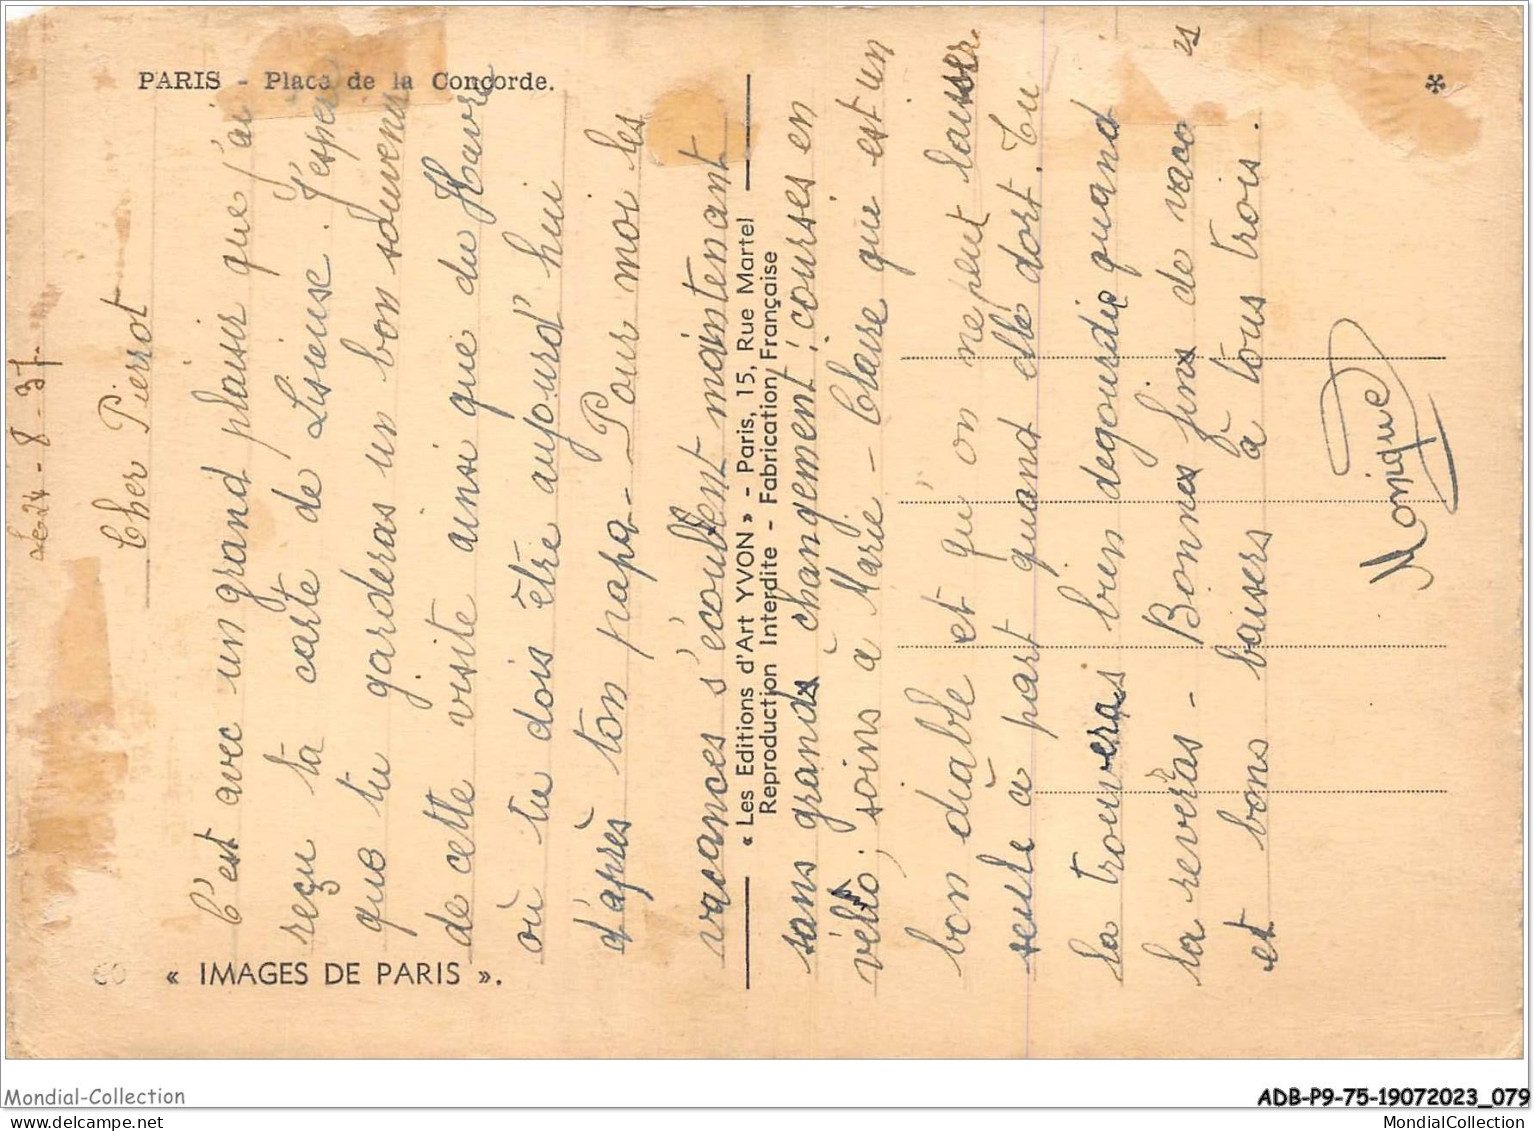 PARIS - Place de la Concorde.
Le 24 - 8 - 37.
Cher Pierrot
C'est avec un grand plaisir que j'ai
reçu ta carte de Lisieuse. J'esper
que tu garderas un bon souvenir
de cette visite ainsi que du Havre
où tu dois être aujourd'hui
d'après ton papa - Pour moi les
vacances s'écoulent maintenant
sans grands changement, courses en
vélo, soins à Marie - Claire qui est un
bon diable et qu'on ne peut laisser
seule à part quand elle dort. Tu
la trouveras bien degourdie quand
la reverras - Bonnes fins de vacan
es
et bons baisers à tous trois.
Monique
« Les Editions d'Art YVON » - Paris, 15, Rue Martel
Reproduction Interdite - Fabrication Française
60 « IMAGES DE PARIS ».
Mondial-Collection
ADB-P9-75-19072023_079
MondialCollection